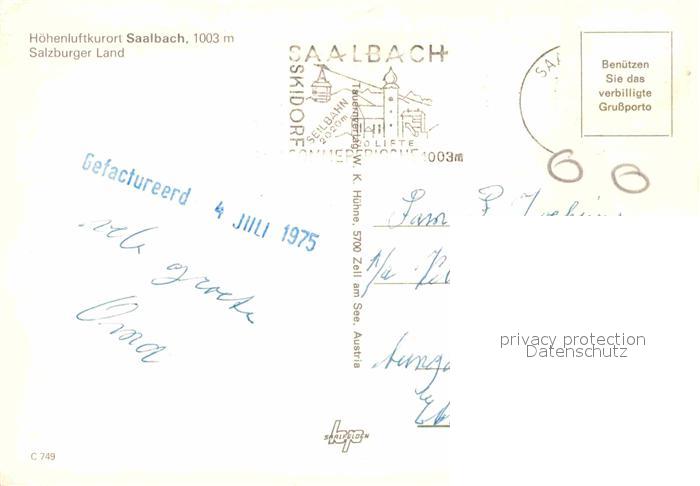 Höhenluftkurort Saalbach, 1003 m
Salzburger Land
SAALBACH
SKIDORF
SEILBAHN
2020m
LIFTE
SOMMERFRISCHE 1003m
SAA
Benützen
Sie das
verbilligte
Grußporto
Gefactureerd
4 JULI 1975
vele groete
Oma
Tauernverlag W. K. Hühne, 5700 Zell am See, Austria
Fam
privacy protection
Datenschutz
SAALFELDEN
C 749